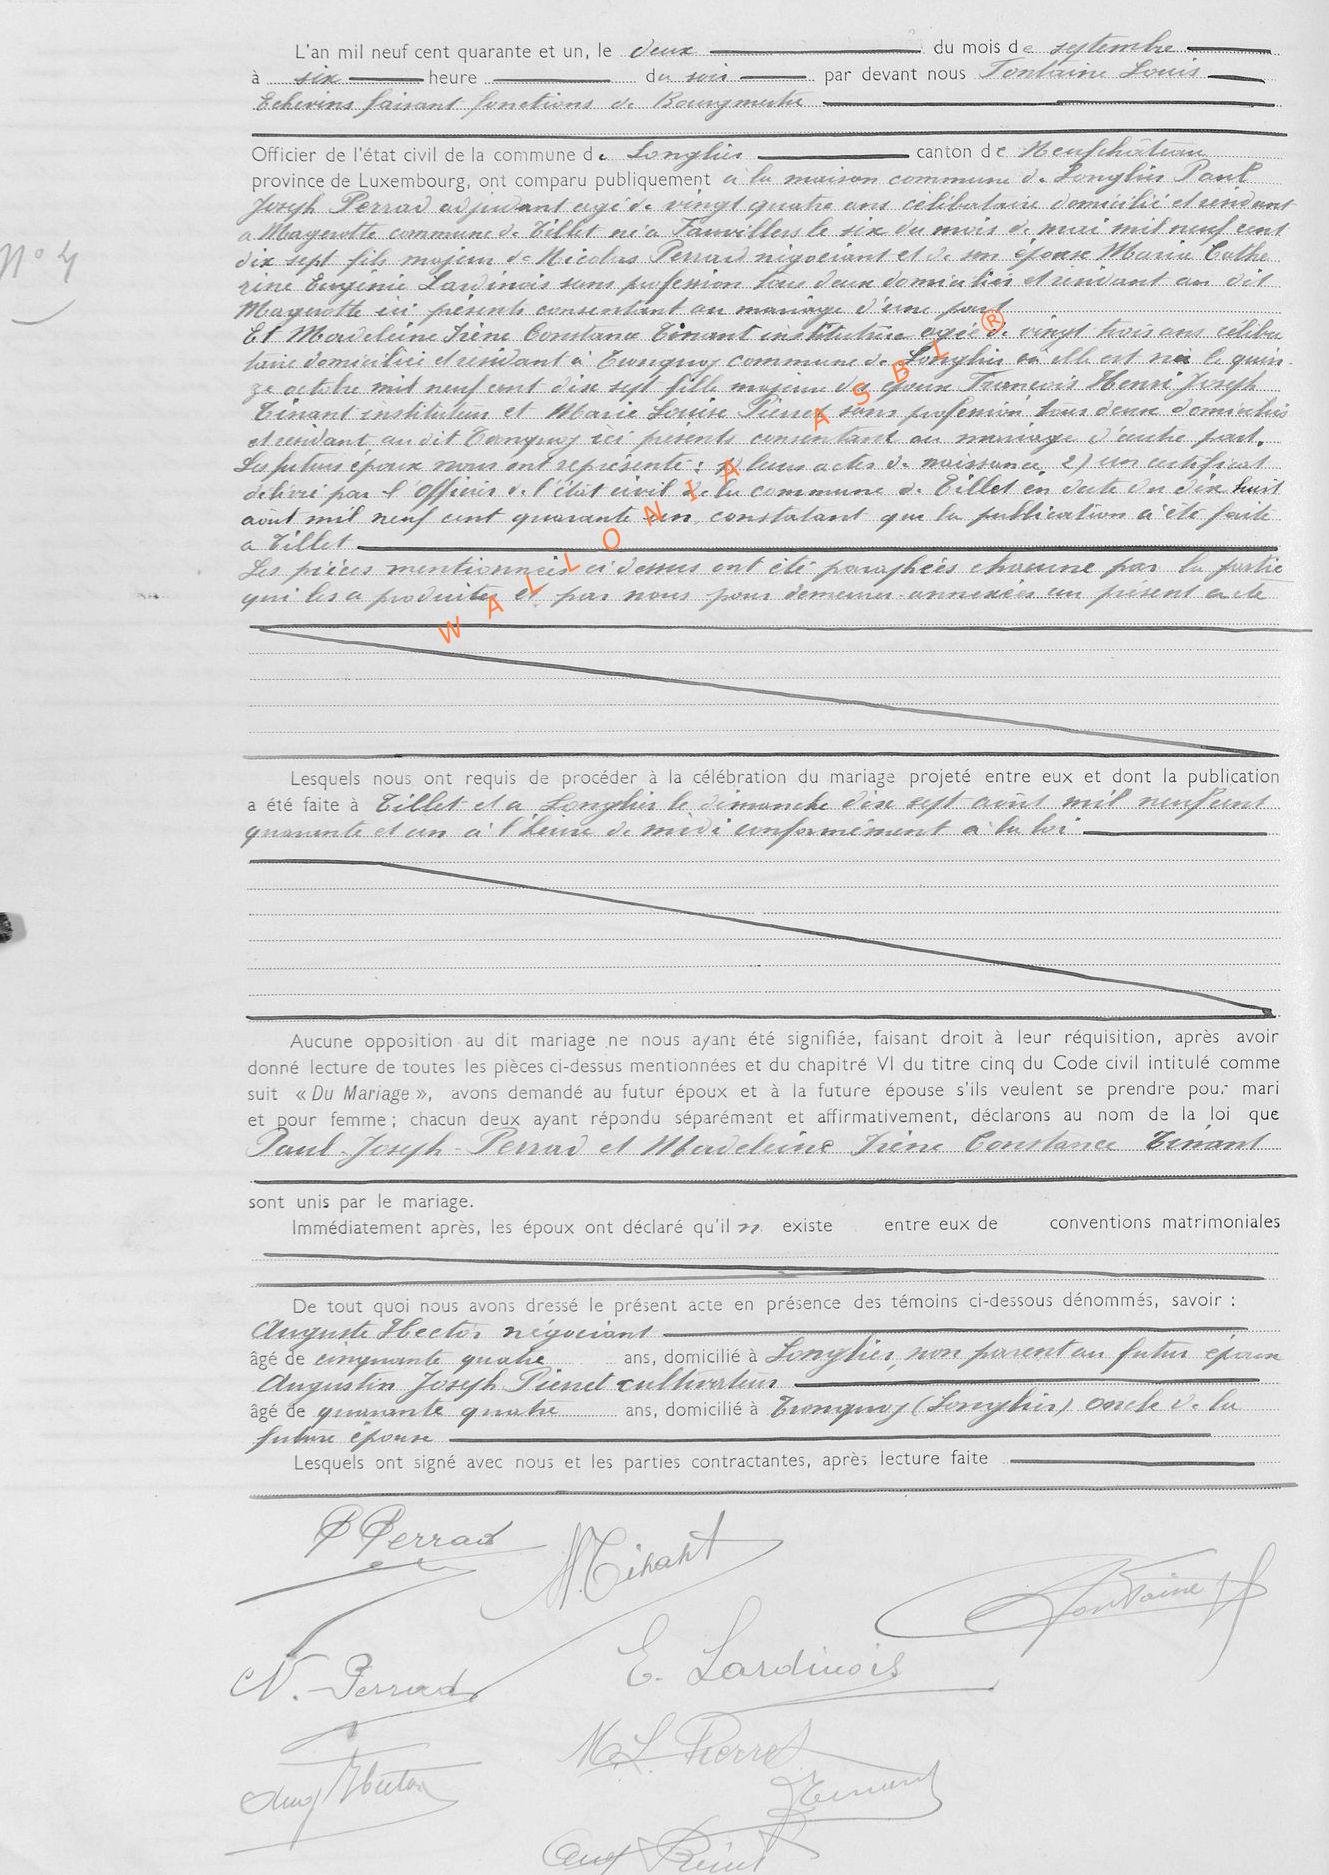 L'an mil neuf cent quarante et un, le deux du mois de septembre
à six heure du soir par devant nous Fontaine Louis
Echevins faisant fonctions de Bourgmestre
Officier de l'état civil de la commune de Longlier canton de Neufchâteau
province de Luxembourg, ont comparu publiquement à la maison commune de Longlier Paul
Joseph Perrad adjudant agé de vingt quatre ans célibataire domicilié et résidant
N° 4
a Magerotte commune de Tillet né à Fauvillers le six du mois de mai mil neuf cent
dix sept fils majeur de Nicolas Perrad négociant et de son épouse Maria Cathe
rine Eugénie Lardinois sans profession tous deux domiciliés et résidant au dit
Magerotte ici présents consentant au mariage d'une part
Et Madeleine Irène Constance Tinant institutrice agée de vingt trois ans céliba
taire domiciliée et résidant à Tronquoy commune de Longlier où elle est née le quin
ze octobre mil neuf cent dix sept fille majeure des époux François Henri Joseph
Tinant instituteur et Marie Louise Pierret sans profession tous deux domiciliés
et résidant au dit Tronquoy ici présents consentant au mariage d'autre part.
Les futurs époux nous ont représenté : 1) leurs actes de naissance 2) un certificat
délivré par l'Officier de l'état civil de la commune de Tillet en date du dix huit
août mil neuf cent quarante un, constatant que la publication a été faite
a Tillet
Les pièces mentionnées ci dessus ont été paraphées chacune par la partie
qui les a produites et par nous pour demeurer annexées au présent acte
WALLONIA ASBL ®
Lesquels nous ont requis de procéder à la célébration du mariage projeté entre eux et dont la publication
a été faite à Tillet et à Longlier le dimanche dix sept août mil neuf cent
quarante et un à l'heure de midi conformément à la loi
Aucune opposition au dit mariage ne nous ayant été signifiée, faisant droit à leur réquisition, après avoir
donné lecture de toutes les pièces ci-dessus mentionnées et du chapitré VI du titre cinq du Code civil intitulé comme
suit « Du Mariage », avons demandé au futur époux et à la future épouse s'ils veulent se prendre pour mari
et pour femme ; chacun deux ayant répondu séparément et affirmativement, déclarons au nom de la loi que
Paul - Joseph - Perrad et Madeleine Irène Constance Tinant
sont unis par le mariage.
Immédiatement après, les époux ont déclaré qu'il n existe entre eux de conventions matrimoniales
De tout quoi nous avons dressé le présent acte en présence des témoins ci-dessous dénommés, savoir :
Auguste Hector négociant
âgé de cinquante quatre ans, domicilié à Longlier, non parent au futur époux
Augustin Joseph Pierret cultivateur
âgé de quarante quatre ans, domicilié à Tronquoy (Longlier) oncle de la
future épouse
Lesquels ont signé avec nous et les parties contractantes, après lecture faite
P Perrad
M. Tinant
Fontaine
N. Perrad
E. Lardinois
M. L. Pierret
Tinant